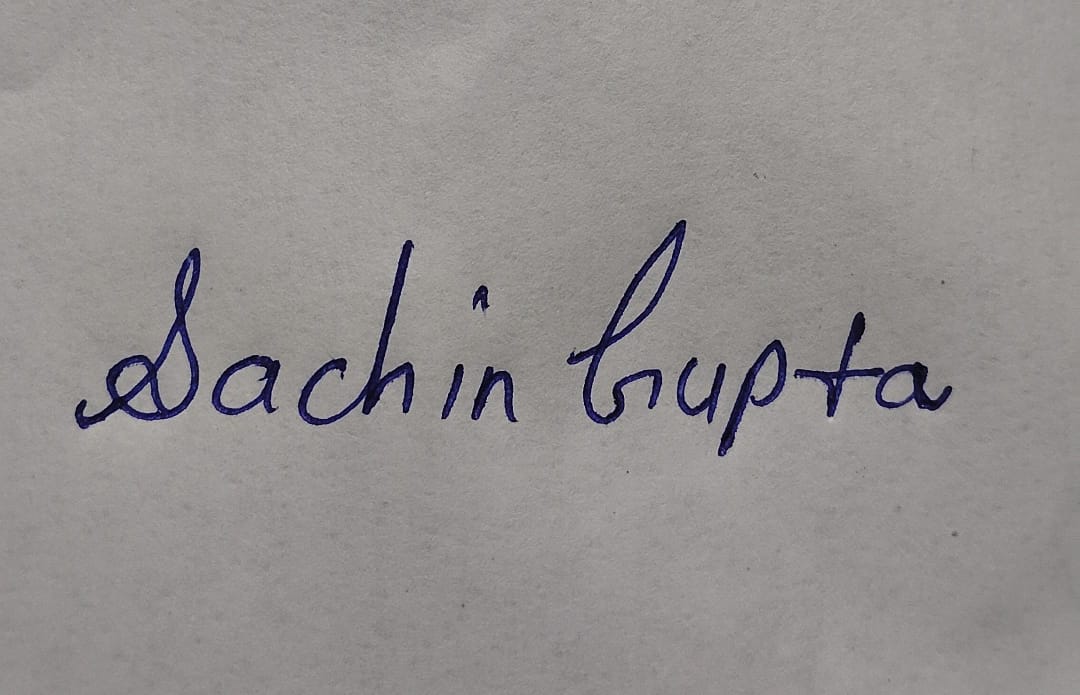 Sachin Gupta